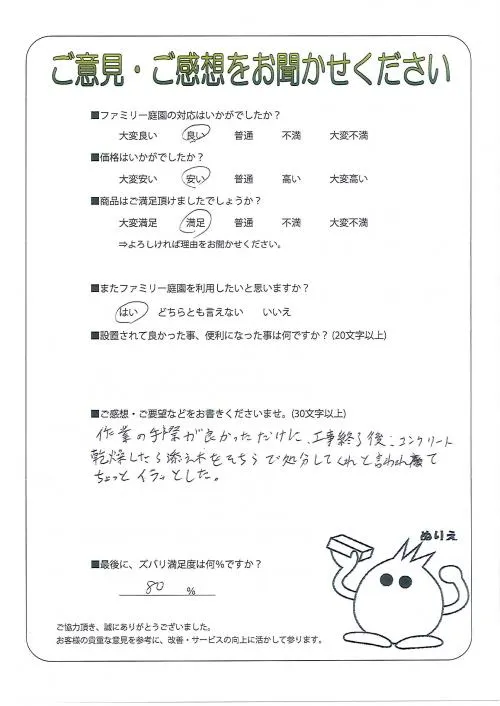 ご意見・ご感想をお聞かせください
■ファミリー庭園の対応はいかがでしたか？
大変良い 良い 普通 不満 大変不満
■価格はいかがでしたか？
大変安い 安い 普通 高い 大変高い
■商品はご満足頂けましたでしょうか？
大変満足 満足 普通 不満 大変不満
⇒よろしければ理由をお聞かせください。
■またファミリー庭園を利用したいと思いますか？
はい どちらとも言えない いいえ
■設置されて良かった事、便利になった事は何ですか？(20文字以上)
■ご感想・ご要望などをお書きくださいませ。(30文字以上)
作業の手際が良かっただけに、工事終了後、コンクリート
乾燥したら添え木をそちらで処分してくれと言われて
ちょっとイラッとした。
ぬりえ
■最後に、ズバリ満足度は何％ですか？
80 %
ご協力頂き、誠にありがとうございました。
お客様の貴重な意見を参考に、改善・サービスの向上に活かして参ります。